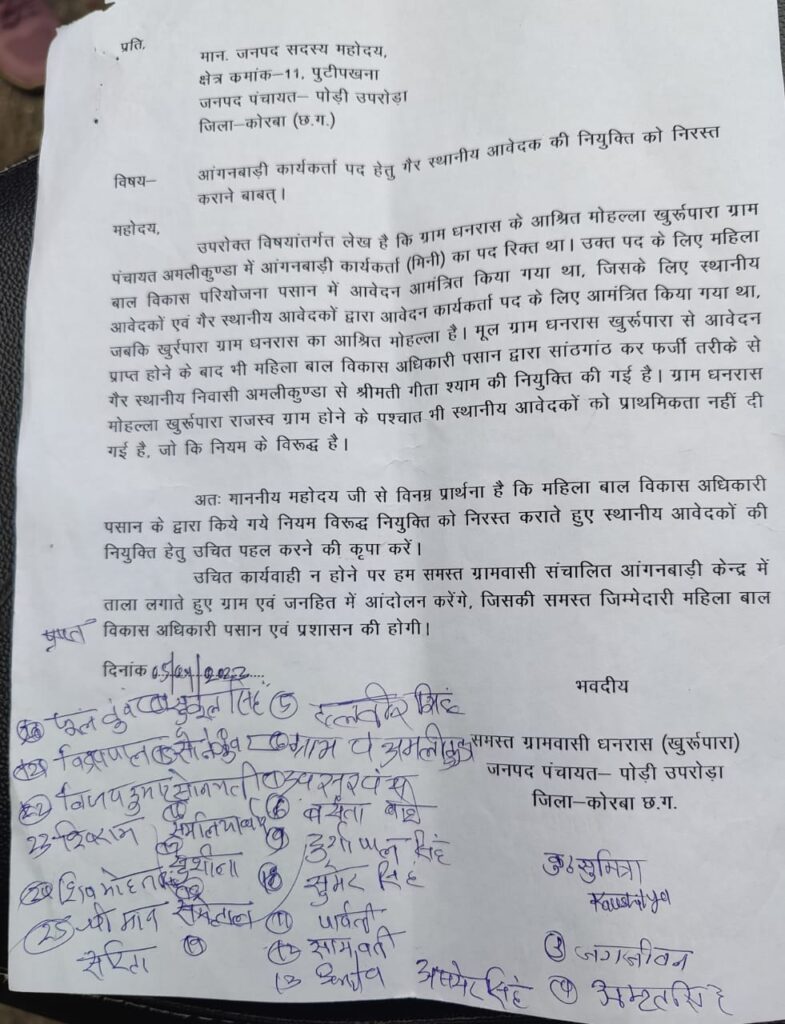 प्रति,
मान. जनपद सदस्य महोदय,
क्षेत्र कमांक–11, पुटीपखना
जनपद पंचायत– पोड़ी उपरोड़ा
जिला–कोरबा (छ.ग.)
विषय–
आंगनबाड़ी कार्यकर्ता पद हेतु गैर स्थानीय आवेदक की नियुक्ति को निरस्त
कराने बाबत्।
महोदय,
उपरोक्त विषयांतर्गत लेख है कि ग्राम धनरास के आश्रित मोहल्ला खुर्रूपारा ग्राम
पंचायत अमलीकुण्डा में आंगनबाड़ी कार्यकर्ता (मिनी) का पद रिक्त था। उक्त पद के लिए महिला
बाल विकास परियोजना पसान में आवेदन आमंत्रित किया गया था, जिसके लिए स्थानीय
आवेदकों एवं गैर स्थानीय आवेदकों द्वारा आवेदन कार्यकर्ता पद के लिए आमंत्रित किया गया था,
जबकि खुर्रपारा ग्राम धनरास का आश्रित मोहल्ला है। मूल ग्राम धनरास खुर्रूपारा से आवेदन
प्राप्त होने के बाद भी महिला बाल विकास अधिकारी पसान द्वारा सांठगांठ कर फर्जी तरीके से
गैर स्थानीय निवासी अमलीकुण्डा से श्रीमती गीता श्याम की नियुक्ति की गई है। ग्राम धनरास
मोहल्ला खुर्रूपारा राजस्व ग्राम होने के पश्चात भी स्थानीय आवेदकों को प्राथमिकता नहीं दी
गई है, जो कि नियम के विरूद्ध है।
अतः माननीय महोदय जी से विनम्र प्रार्थना है कि महिला बाल विकास अधिकारी
पसान के द्वारा किये गये नियम विरूद्ध नियुक्ति को निरस्त कराते हुए स्थानीय आवेदकों की
नियुक्ति हेतु उचित पहल करने की कृपा करें।
उचित कार्यवाही न होने पर हम समस्त ग्रामवासी संचालित आंगनबाड़ी केन्द्र में
ताला लगाते हुए ग्राम एवं जनहित में आंदोलन करेंगे, जिसकी समस्त जिम्मेदारी महिला बाल
विकास अधिकारी पसान एवं प्रशासन की होगी।
दिनांक
भवदीय
समस्त ग्रामवासी धनरास (खुर्रूपारा)
जनपद पंचायत– पोड़ी उपरोड़ा
जिला–कोरबा छ.ग.
23 शिवराम
सुमेर सिंह
कु० सुमित्रा
11 पार्वती
3 जगजीवन
सरिता
4 अमृतसिंह